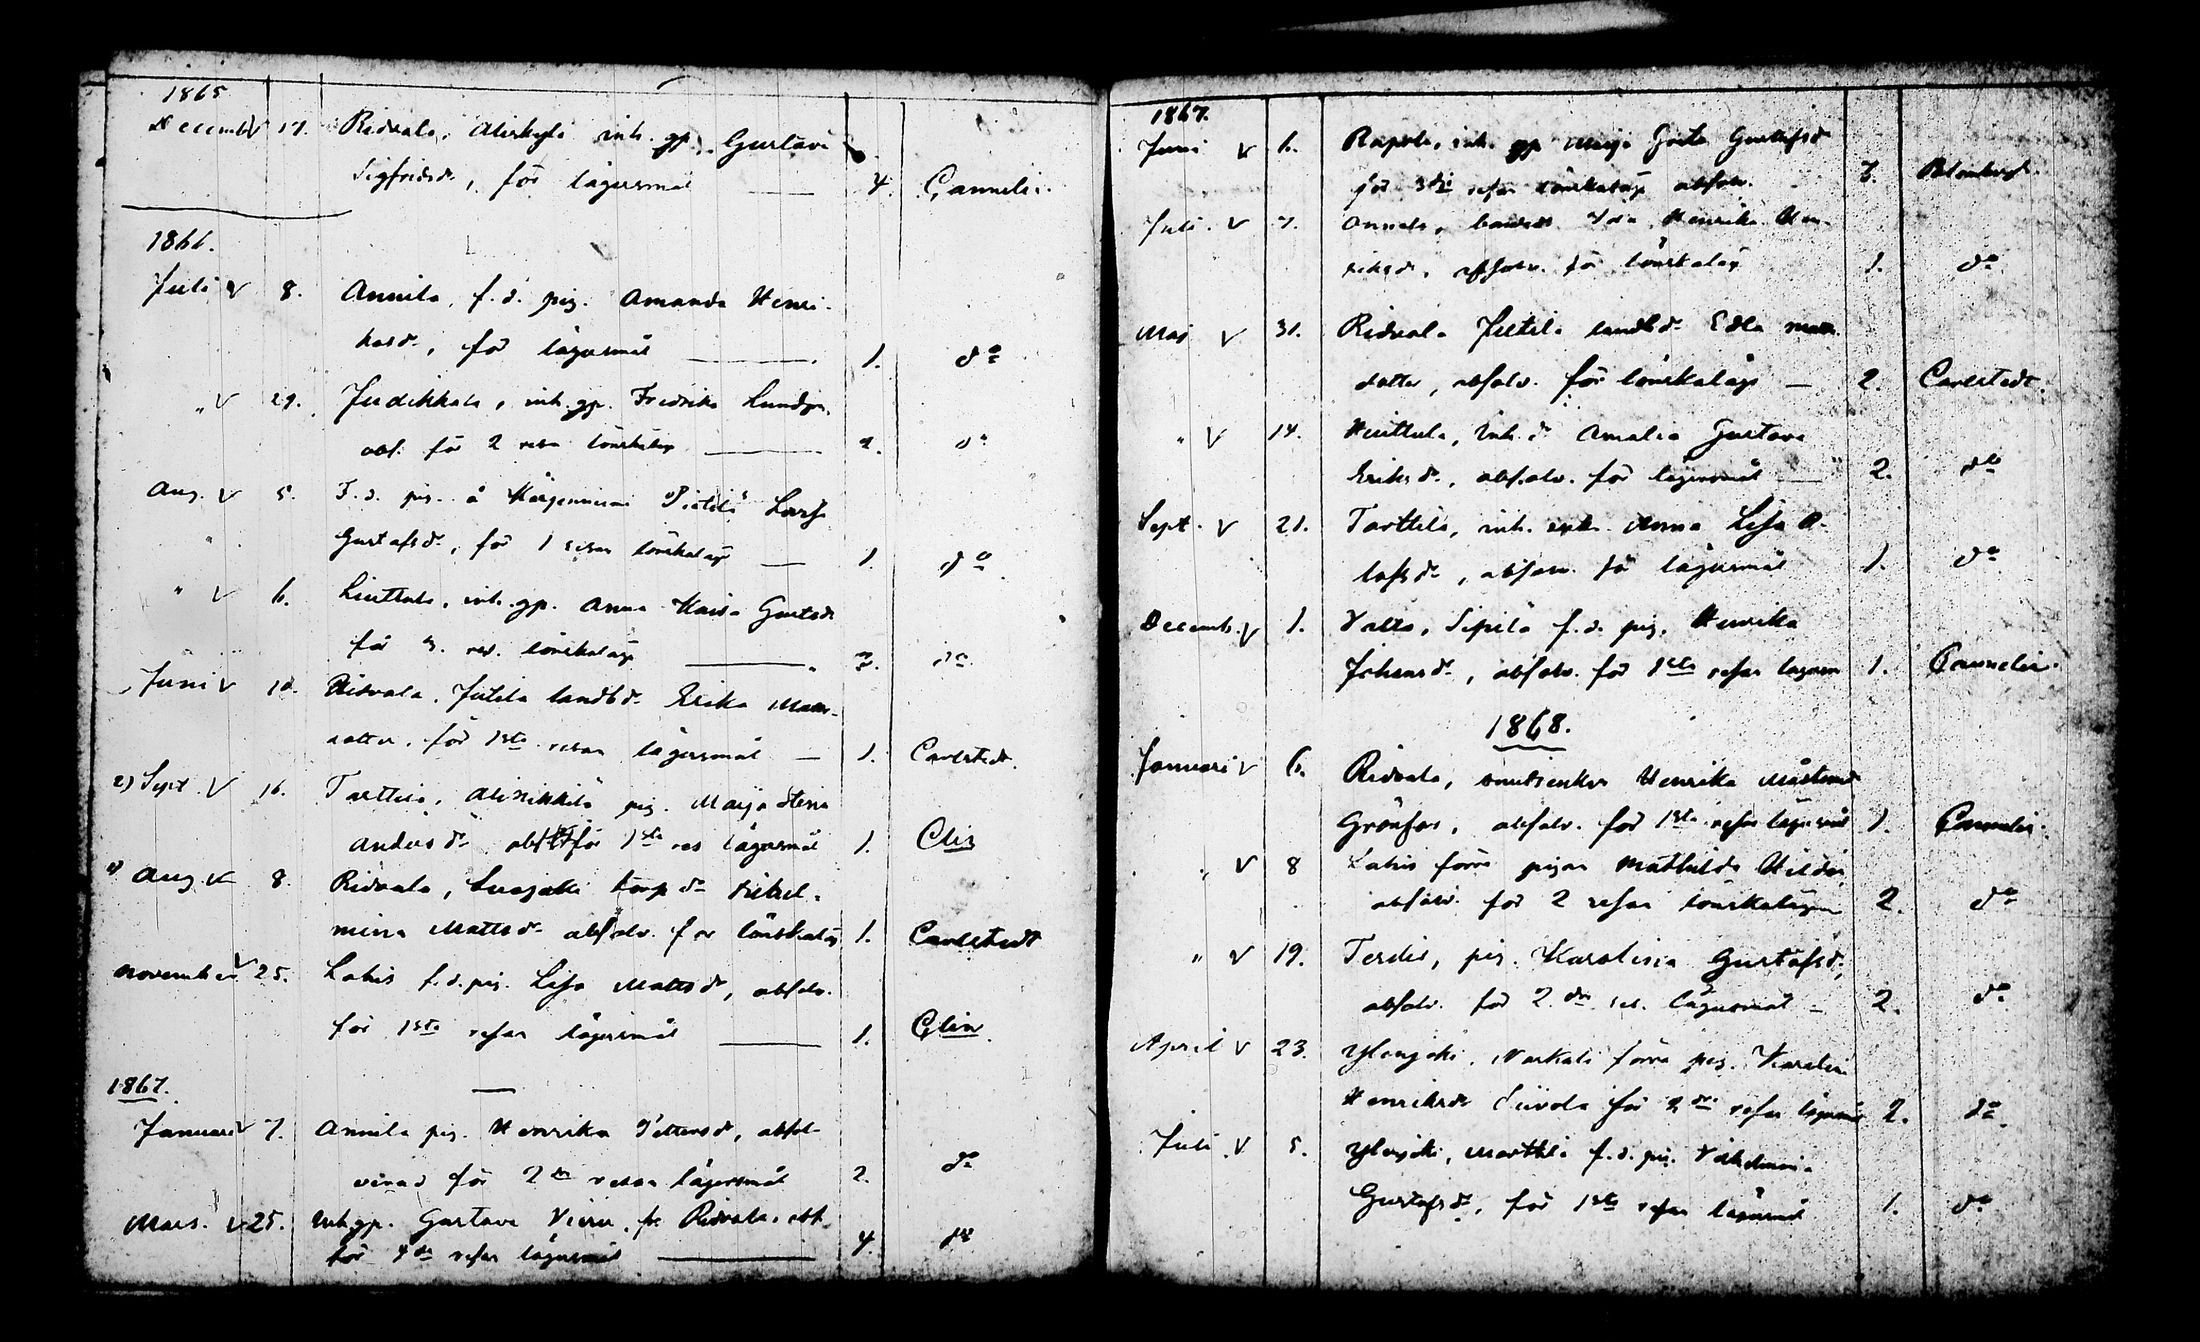 1865
Decemb V 17. Ridvala, Alikylä inh. gp. Gustava
Sigfridsd., för lägersmål — 4. Cannelin.
1866.
Juli V 8. Annila, f. d. pig. Amanda Henri-
ksd., för lägersmål — 1. do
" V 29. Judikkala, inh. gp. Fredrika Lundgr.
abs. för 2 resa lönskaläge — 2. do
Aug. V 5. F. d. pig. å Kärjenniemi Pietilä Lovisa
Gustafsd., för 1 resan lönskaläge — 1. do
" V 6. Liuttula, inh. gp. Anna Kaisa Gustsdr
för 3. res. lönskaläge — 3. do
Juni V 10. Ridvala, Jutila landbd. Erika Matts-
dotter, för 1sta resan lägersmål — 1. Carlstedt.
2) Sept. V 16. Tarttila, Alinikkilä pig. Maija Stina
Andersdr. för 1sta res lägersmål 1. Clin
1) Aug V 8. Ridvala, torp dr Vilhel-
mina Mattsdr absolv. för lönskaläge 1. Carlstedt
November V 25. Lahis f. d. pig. Lisa Mattsdr, absolv.
för 1sta resan lägersmål — 1. Clin.
1867.
Januari V 7. Annila pig. Henrika Pettersdr, absol-
verad för 2dra resan lägersmål 2. do
Mars. V 25. Inh gp. Gustava fr. Ridvala, abs.
för 4de resan lägersmål — 4. do
1867.
Juni V 6. Rapola, inh. gp Maija Greta Gustafsd
för 3dje resan lönskaläge absolv. 3. Blomberg.
Juli. V 7. Annila, Ida Henrika Hen-
riksd, absolv. för lönskaläge 1. do
Maj V 31. Ridvala Jutila landbdr Edla Matts
dotter, absolv. för lönskaläge — 2. Carlstedt.
" V 14. Huittula, Inh. d. Amalia Gustava
Eriksdr., absolv. för lägersmål — 2. do
Sept. V 21. Tarttila, inh. enk. Anna Lisa A-
, absolv. för lägersmål 1. do
Decemb. V 1. Valto, Sipilä f. d. pig. Henrika
Johansdr, absolv. för 1sta resan lägersm 1. Cannelin.
1868.
Januari V 6. Ridvala, smedsenkan Henrika Mårtensd
Grönfors, absolv. för 1sta resan lägersmål 1. Cannelin.
" V 8 Lahis förra pigan Mathilda Hilda
absolv. för 2 resan lönskaläge 2. do
" V 19. Terdis, pig. Karolina Gustafsdr,
absolv. för 2.dra res. lägersmål — 2. do
April V 23. Ylenjoki, förra pig. Karolina
Henriksdr Siivola för 2dra resan lägersmål 2. do
Juli V 5. Ylenjoki, Marttila f. d. pig. Vilhelmina
Gustafsdr, för 1sta resan lägersmål 1. do